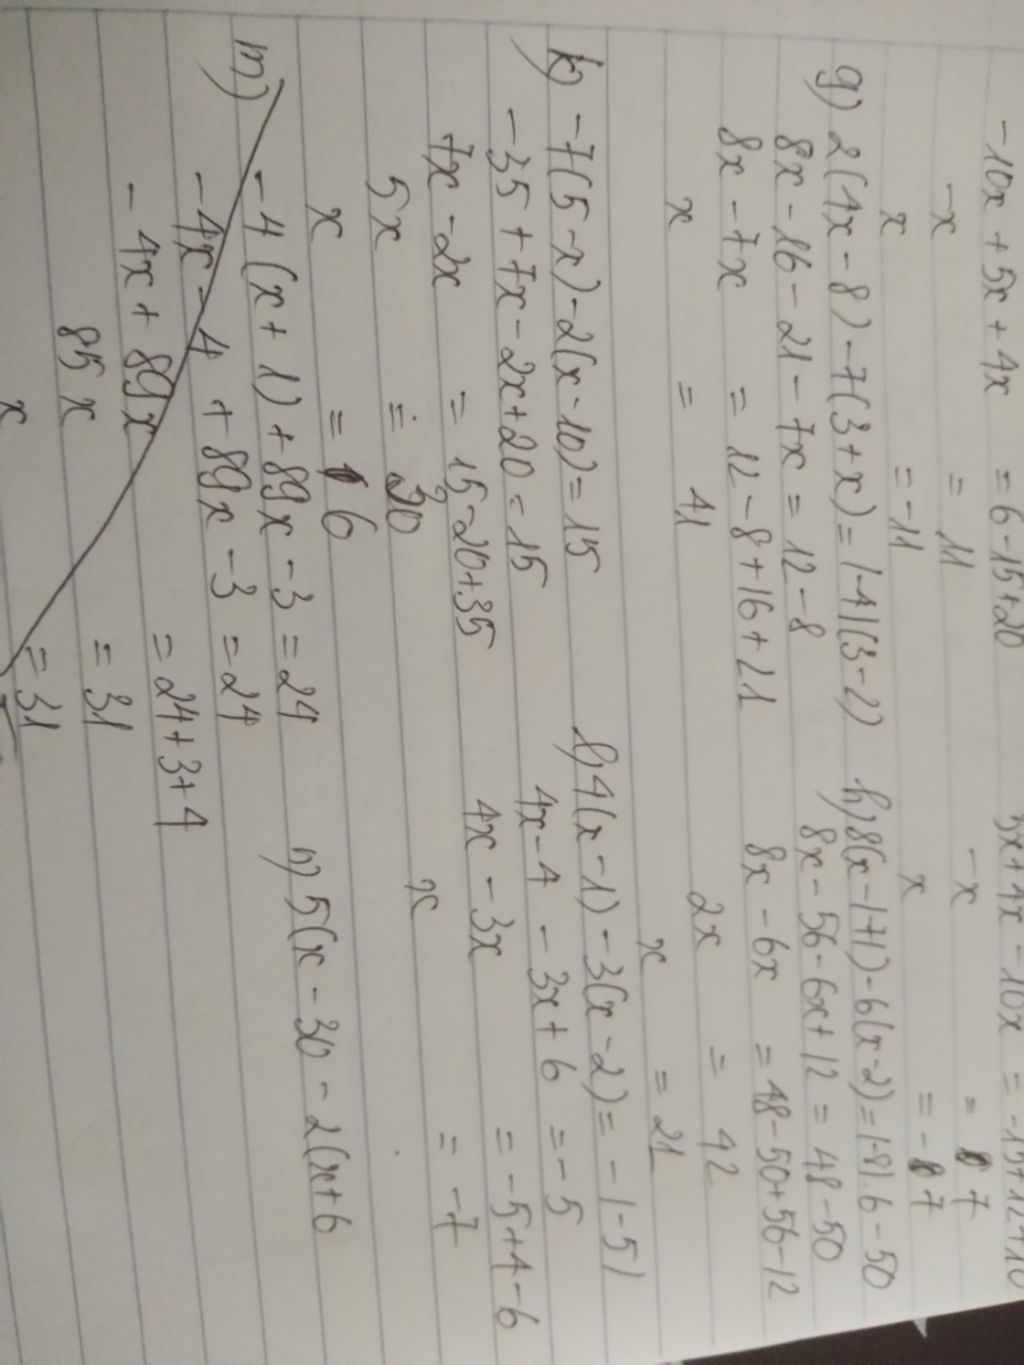 -10x + 5x + 4x = 6-15+20
-x = 11
x = -11
5x+4x-10x = -15+12+10
-x = 7
x = -7
g) 2(4x-8)-7(3+x)=|-4|(3-2)
8x-16-21-7x=12-8
8x-7x = 12-8+16+21
x = 41
h) 8(x-|-7|)-6(x-2)=|-8|.6-50
8x-56-6x+12=48-50
8x-6x = 48-50+56-12
2x = 42
x = 21
k) -7(5-x)-2(x-10)=15
-35+7x-2x+20=15
7x-2x = 15-20+35
5x = 30
x = 6
l) 4(x-1)-3(x-2)=-|-5|
4x-4-3x+6 = -5
4x-3x = -5+4-6
x = -7
m) -4(x+1)+89x-3=24
-4x-4+89x-3=24
-4x+89x = 24+3+4
85x = 31
x = 31
n) 5(x-30-2(x+6